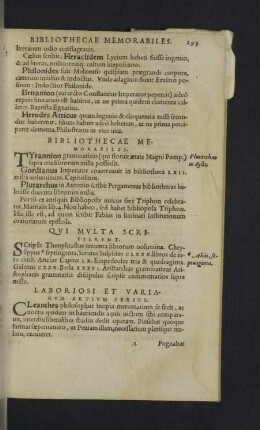 BIBLIOTHECAE MEMORABILES.
293
litterarum odio conflagrauit.
Caelius scribit, Heraclidem Lycium habeti fuisse ingenio,
& ad literas, politioremq; cultum ineptissimo.
Philonides fuit Melitensis quispiam praegrandi corpore,
caeterum insulsus & indoctus. Vnde adagium fuxit Erasmi po-
situm: Indoctior Philonide.
Britannion (cui victo Constantius Imperator pepercit) adeo
expers literarum est habitus, ut ne prima quidem elementa cal-
leret. Baptista Egnatius.
Herodes Atticus quum ingenio & eloquentia nulli secun-
dus haberetur, filium habuit adeo hebetem, ut ne prima per-
ciperet elementa. Philostratus in eius uita.
BIBLIOTHECAE ME-
MORABILES.
TYrannion grammaticus (qui floruit aetate Magni Pomp.)
supra tria librorum millia possedit.
Plutarchus
in Sylla.
Gordianus Imperator coaceruauit in bibliotheca LXII.
milia uoluminum. Capitolinus.
Plutarchus in Antonio scribit Pergamenas bibliothecas ha-
buisse ducenta librorum milia.
Porro ex antiquis Bibliopolis unicus fere Triphon celebra-
tur. Martialis lib. 4. Non habeo, sed habet bibliopola Triphon.
Hic ille est, ad quem scribit Fabius in limine Institutionum
oratoriarum epistola.
QVI MVLTA SCRI-
PSERVNT.
SCripsit Theophrastus trecenta librorum uolumina. Chry-
sippus * septingenta. Seruius Sulpitius CLXXX. libros de iu-
re ciuili. Ateius Capito
Empedocles tria & quadraginta.
Galenus CXXV. Beda XXXVI. Aristarchus grammaticus Ari-
stophanis grammatici discipulus scripsit commentarios supra
mille.
LABORIOSI ET VARIA-
RVM ARTIVM PERITI.
CLeanthes philosophus inopia mercenarium se fecit, ac
noctu quidem in hauriendis aquis uictum sibi compara-
uit, interdiu sibertatibus studijs dedit operam. Pinsebat quoque
farinae saepenumero, ut
necessarium plerisque tra-
Pugnabat